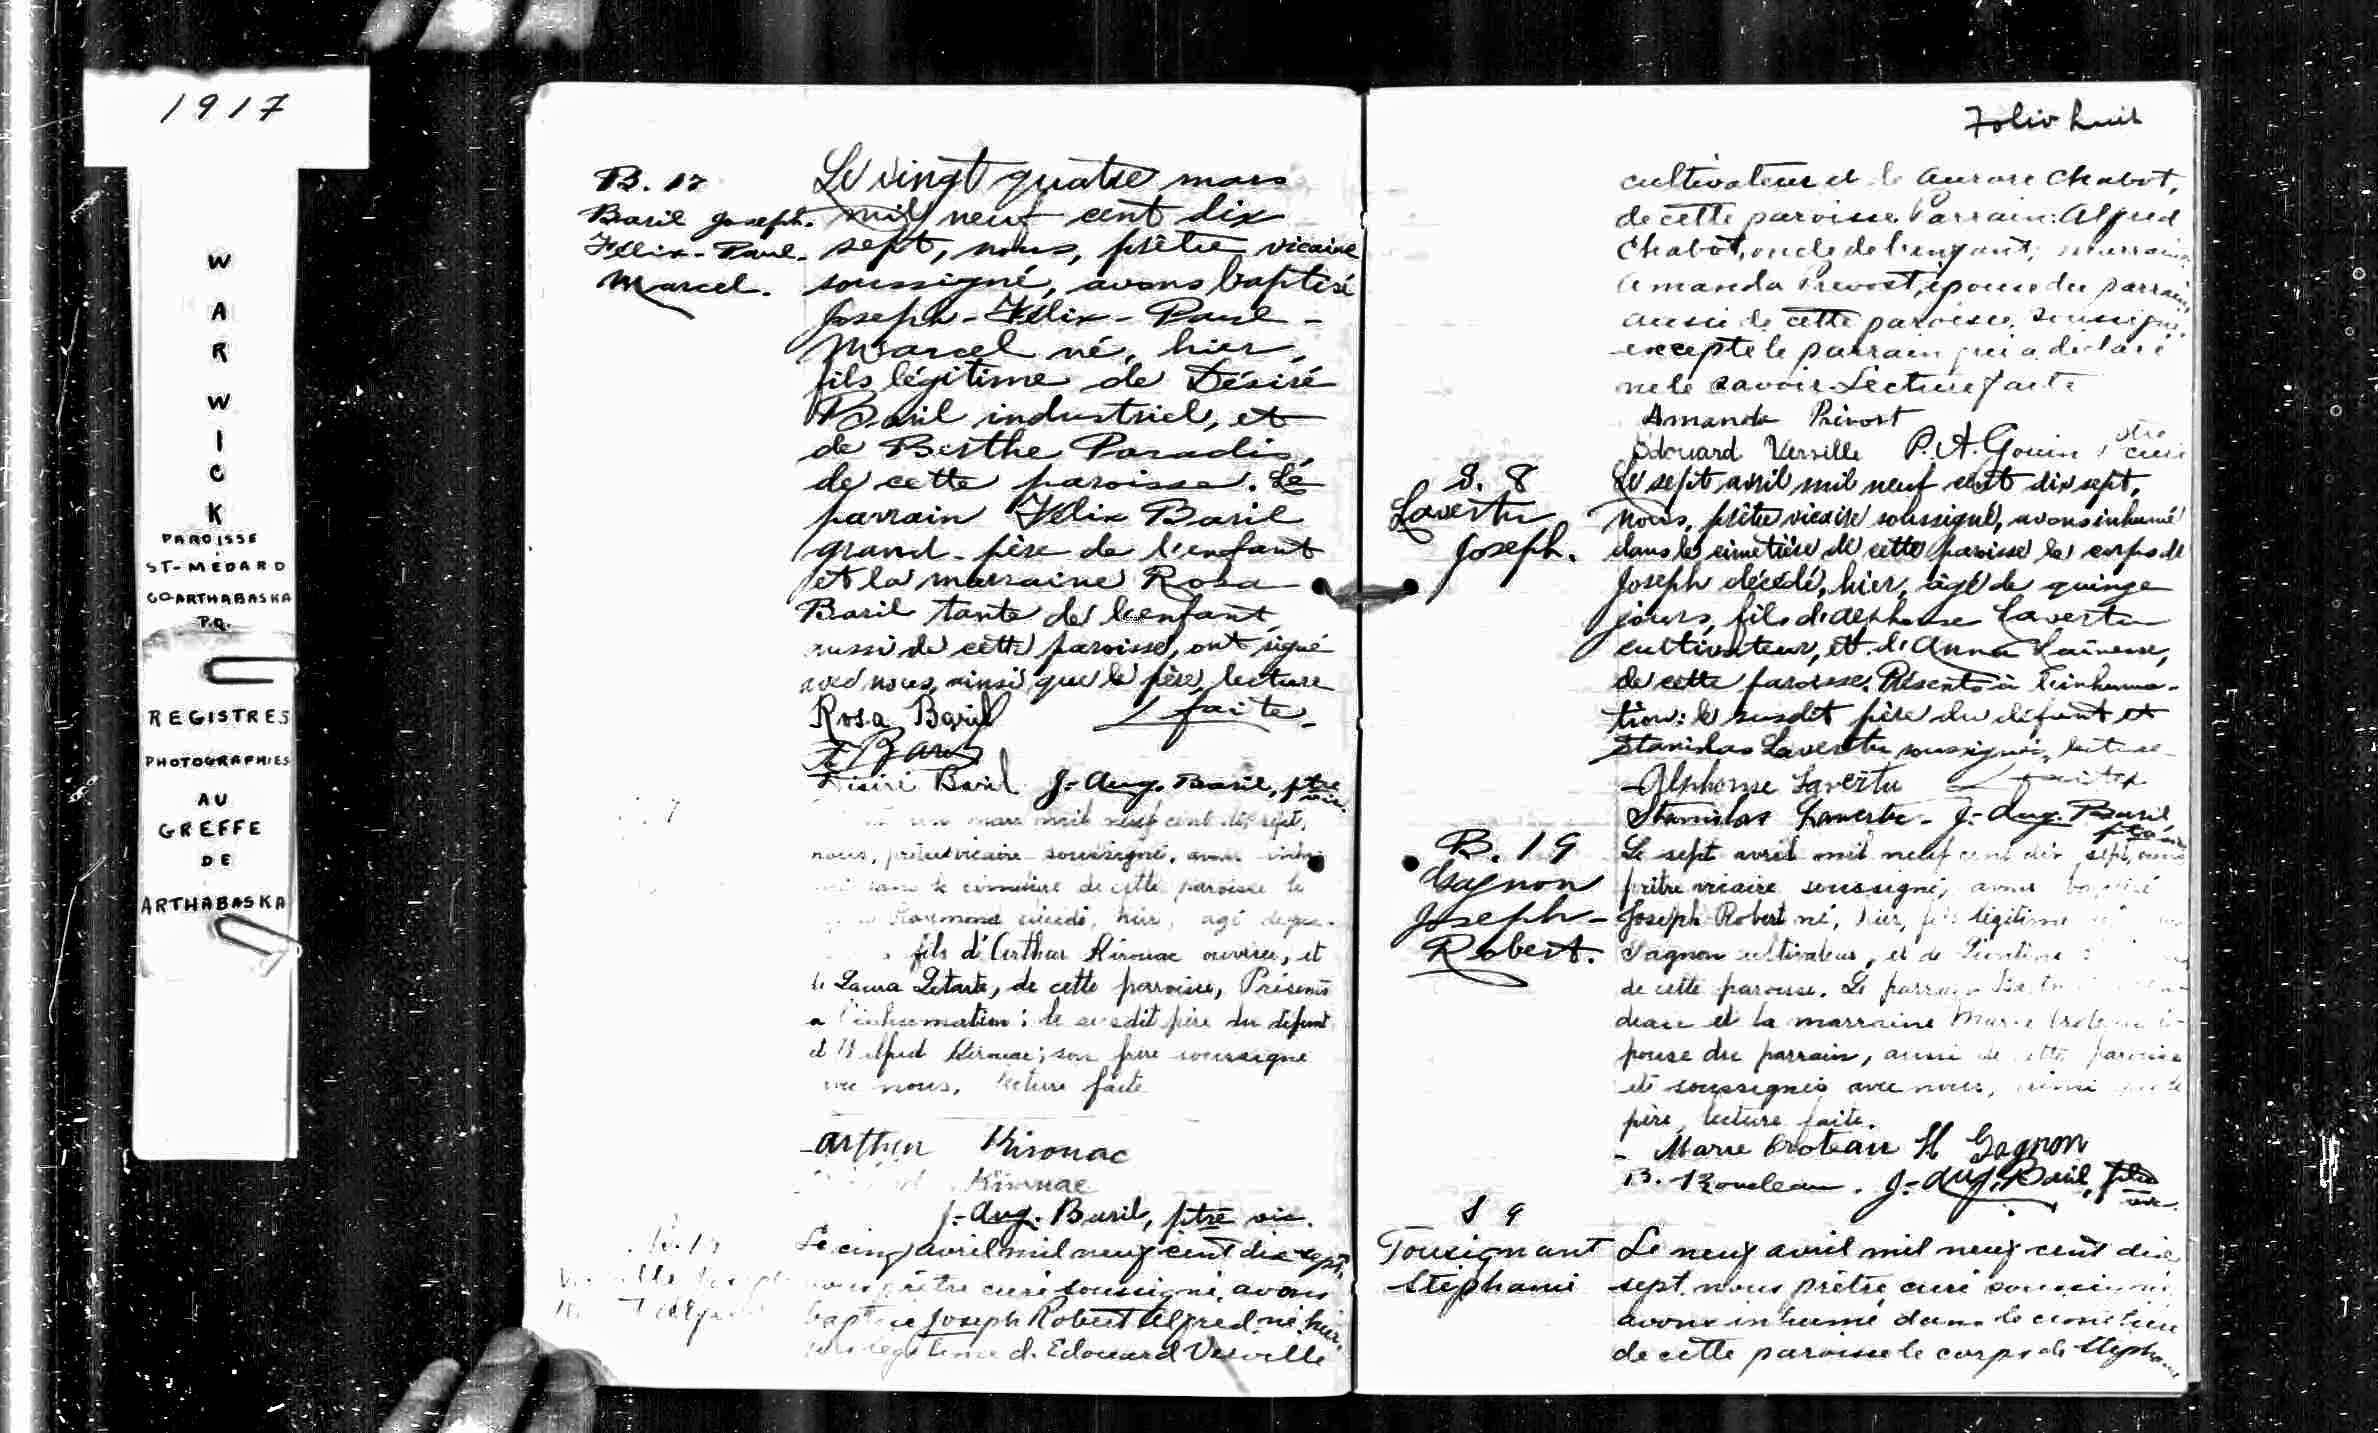 1917
WARWICK
PAROISSE
ST-MÉDARD
CO-ARTHABASKA
P.Q.
REGISTRES
PHOTOGRAPHIES
AU
GREFFE
DE
ARTHABASKA
B. 17
Baril Joseph-
Félix-Paul-
Marcel.
Le vingt quatre mars
mil neuf cent dix
sept, nous, prêtre vicaire
soussigné, avons baptisé
Joseph-Félix-Paul-
Marcel né, hier,
fils légitime de Désiré
Baril industriel, et
de Berthe Paradis,
de cette paroisse. Le
parrain Félix Baril
grand-père de l'enfant
et la marraine Rosa
Baril tante de l'enfant,
aussi de cette paroisse, ont signé
avec nous, ainsi que le père, lecture
faite.
Rosa Baril
Désiré Baril J.-Aug. Baril, ptre vic.
mars mil neuf cent dix sept,
nous, prêtre vicaire soussigné, avons
dans le cimetière de cette paroisse le
décédé, hier, agé de
fils d'Arthur Kirouac ouvrier, et
de Laura Letarte, de cette paroisse, Présents
a l'inhumation: le susdit père du défunt
et Kirouac; son frère soussigné
avec nous. lecture faite
Arthur Kirouac
Kirouac
J.-Aug. Baril, ptre vic.
Le cinq avril mil neuf cent dix sept,
nous prêtre curé soussigné, avons
baptisé Joseph Robert Alfred, né hier,
fils légitime d. Edouard Verville
Folio huit
cultivateur et de Aurore Chabot,
de cette paroisse. Parrain: Alfred
Chabot, oncle de l'enfant; marraine
Amanda Prevost, épouse du parrain,
aussi de cette paroisse, soussignés
excepté le parrain qui a déclaré
ne le savoir. Lecture faite
Amanda Prévost
Edouard Verville P. A. Gouin, ptre curé
S. 8
Lavertu
Joseph.
Le sept avril mil neuf cent dix sept,
nous, prêtre vicaire soussigné, avons inhumé
dans le cimetière de cette paroisse le corps de
Joseph décédé, hier, agé de quinze
jours, fils d'Alphonse Lavertu
cultivateur, et d'Anna
de cette paroisse. Présents à l'inhuma-
tion: le susdit père du défunt et
Stanislas Lavertu soussignés, lecture
faite.
Alphonse Lavertu
Stanislas Lavertu - J.-Aug. Baril, ptre
B. 19
Gagnon
Joseph-
Robert.
Le sept avril mil neuf cent dix sept, nous
prêtre vicaire soussigné, avons baptisé
Joseph Robert né, hier, fils légitime
Gagnon cultivateur, et de
de cette paroisse. Le parrain
deau et la marraine Marie Croteau é-
pouse du parrain, aussi de cette paroisse
ont soussignés avec nous, ainsi que le
père, lecture faite.
Marie Croteau H Gagnon
B. Rondeau. J.-Aug. Baril, ptre vic.
S 9
Tousignant
Stéphanie
Le neuf avril mil neuf cent dix
sept, nous prêtre curé soussigné
avons inhumé dans le cimetière
de cette paroisse le corps de Stéphanie